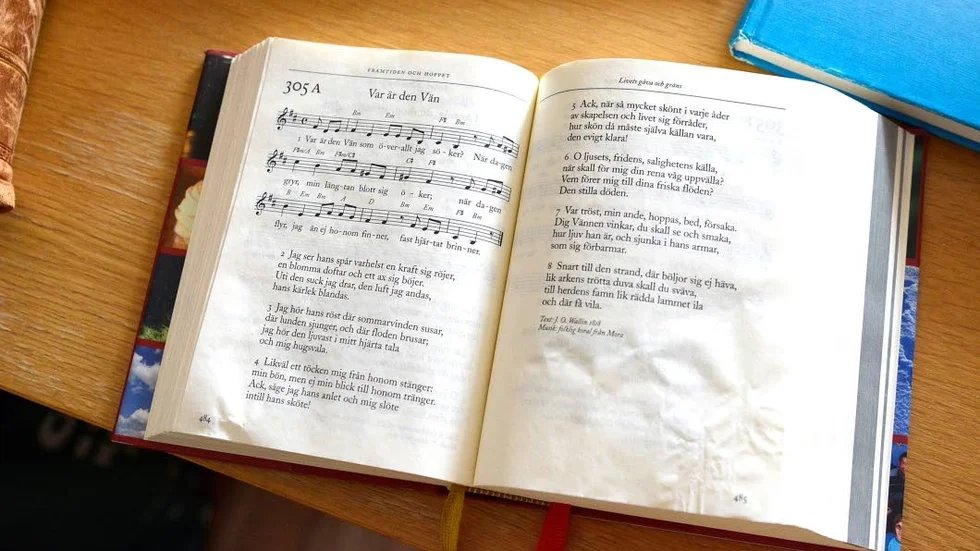 FRAMTIDEN OCH HOPPET
305 A
Var är den Vän
Bm Em F♯ Bm
1 Var är den Vän som ö-ver-allt jag sö-ker? När da-gen
F♯m/A Bm F♯m/C♯ C♯ F♯
gryr, min läng-tan blott sig ö-ker; när da-gen
B Em Bm A D Bm Em F♯ Bm
flyr, jag än ej ho-nom fin-ner, fast hjär-tat brin-ner.
2 Jag ser hans spår varhelst en kraft sig röjer,
en blomma doftar och ett ax sig böjer.
Uti den suck jag drar, den luft jag andas,
hans kärlek blandas.
3 Jag hör hans röst där sommarvinden susar,
där lunden sjunger, och där floden brusar;
jag hör den ljuvast i mitt hjärta tala
och mig hugsvala.
4 Likväl ett töcken mig från honom stänger:
min bön, men ej min blick till honom tränger.
Ack, såge jag hans anlet och mig slöte
intill hans sköte!
484
Livets gåva och gräns
5 Ack, när så mycket skönt i varje åder
av skapelsen och livet sig förråder,
hur skön då måste själva källan vara,
den evigt klara!
6 O ljusets, fridens, salighetens källa,
när skall för mig din rena våg uppvälla?
Vem förer mig till dina friska flöden?
Den stilla döden.
7 Var tröst, min ande, hoppas, bed, försaka.
Dig Vännen vinkar, du skall se och smaka,
hur ljuv han är, och sjunka i hans armar,
som sig förbarmar.
8 Snart till den strand, där böljor sig ej häva,
lik arkens trötta duva skall du sväva,
till herdens famn lik rädda lammet ila
och där få vila.
Text: J. O. Wallin 1818
Musik: folklig koral från Mora
485